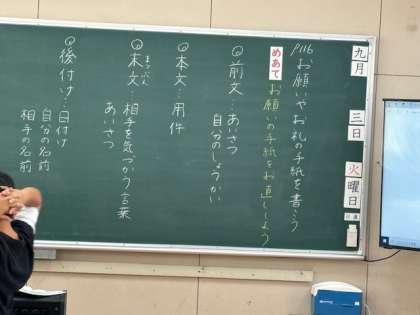 九月
三日
火曜日
日直
P116 お願いやお礼の手紙を書こう
めあて お願いの手紙をお直ししよう
前文…あいさつ
自分のしょうかい
本文…用件
末文…相手を気づかう言葉
まつぶん
あいさつ
後付け…日付け
自分の名前
相手の名前